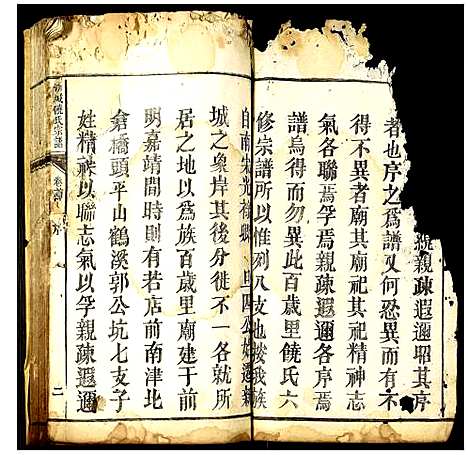 親疎遐邇昭其序
者也序之爲譜又何恐異而有不
得不異者廟其廟祀其祀精神志
氣各聯焉孚焉親疎遐邇各序焉
譜烏得而勿異此百歲里饒氏六
修宗譜所以惟列八支也按我族
自南宋光祿卿四公始遷
城之象岸其後分徙不一各就所
居之地以爲族百歲里廟建于前
明嘉靖間時則有若店前南津北
倉橋頭平山鶴溪郭公坑七支子
姓精神以聯志氣以孚親疎遐邇
城饒氏宗譜
卷首
序
二